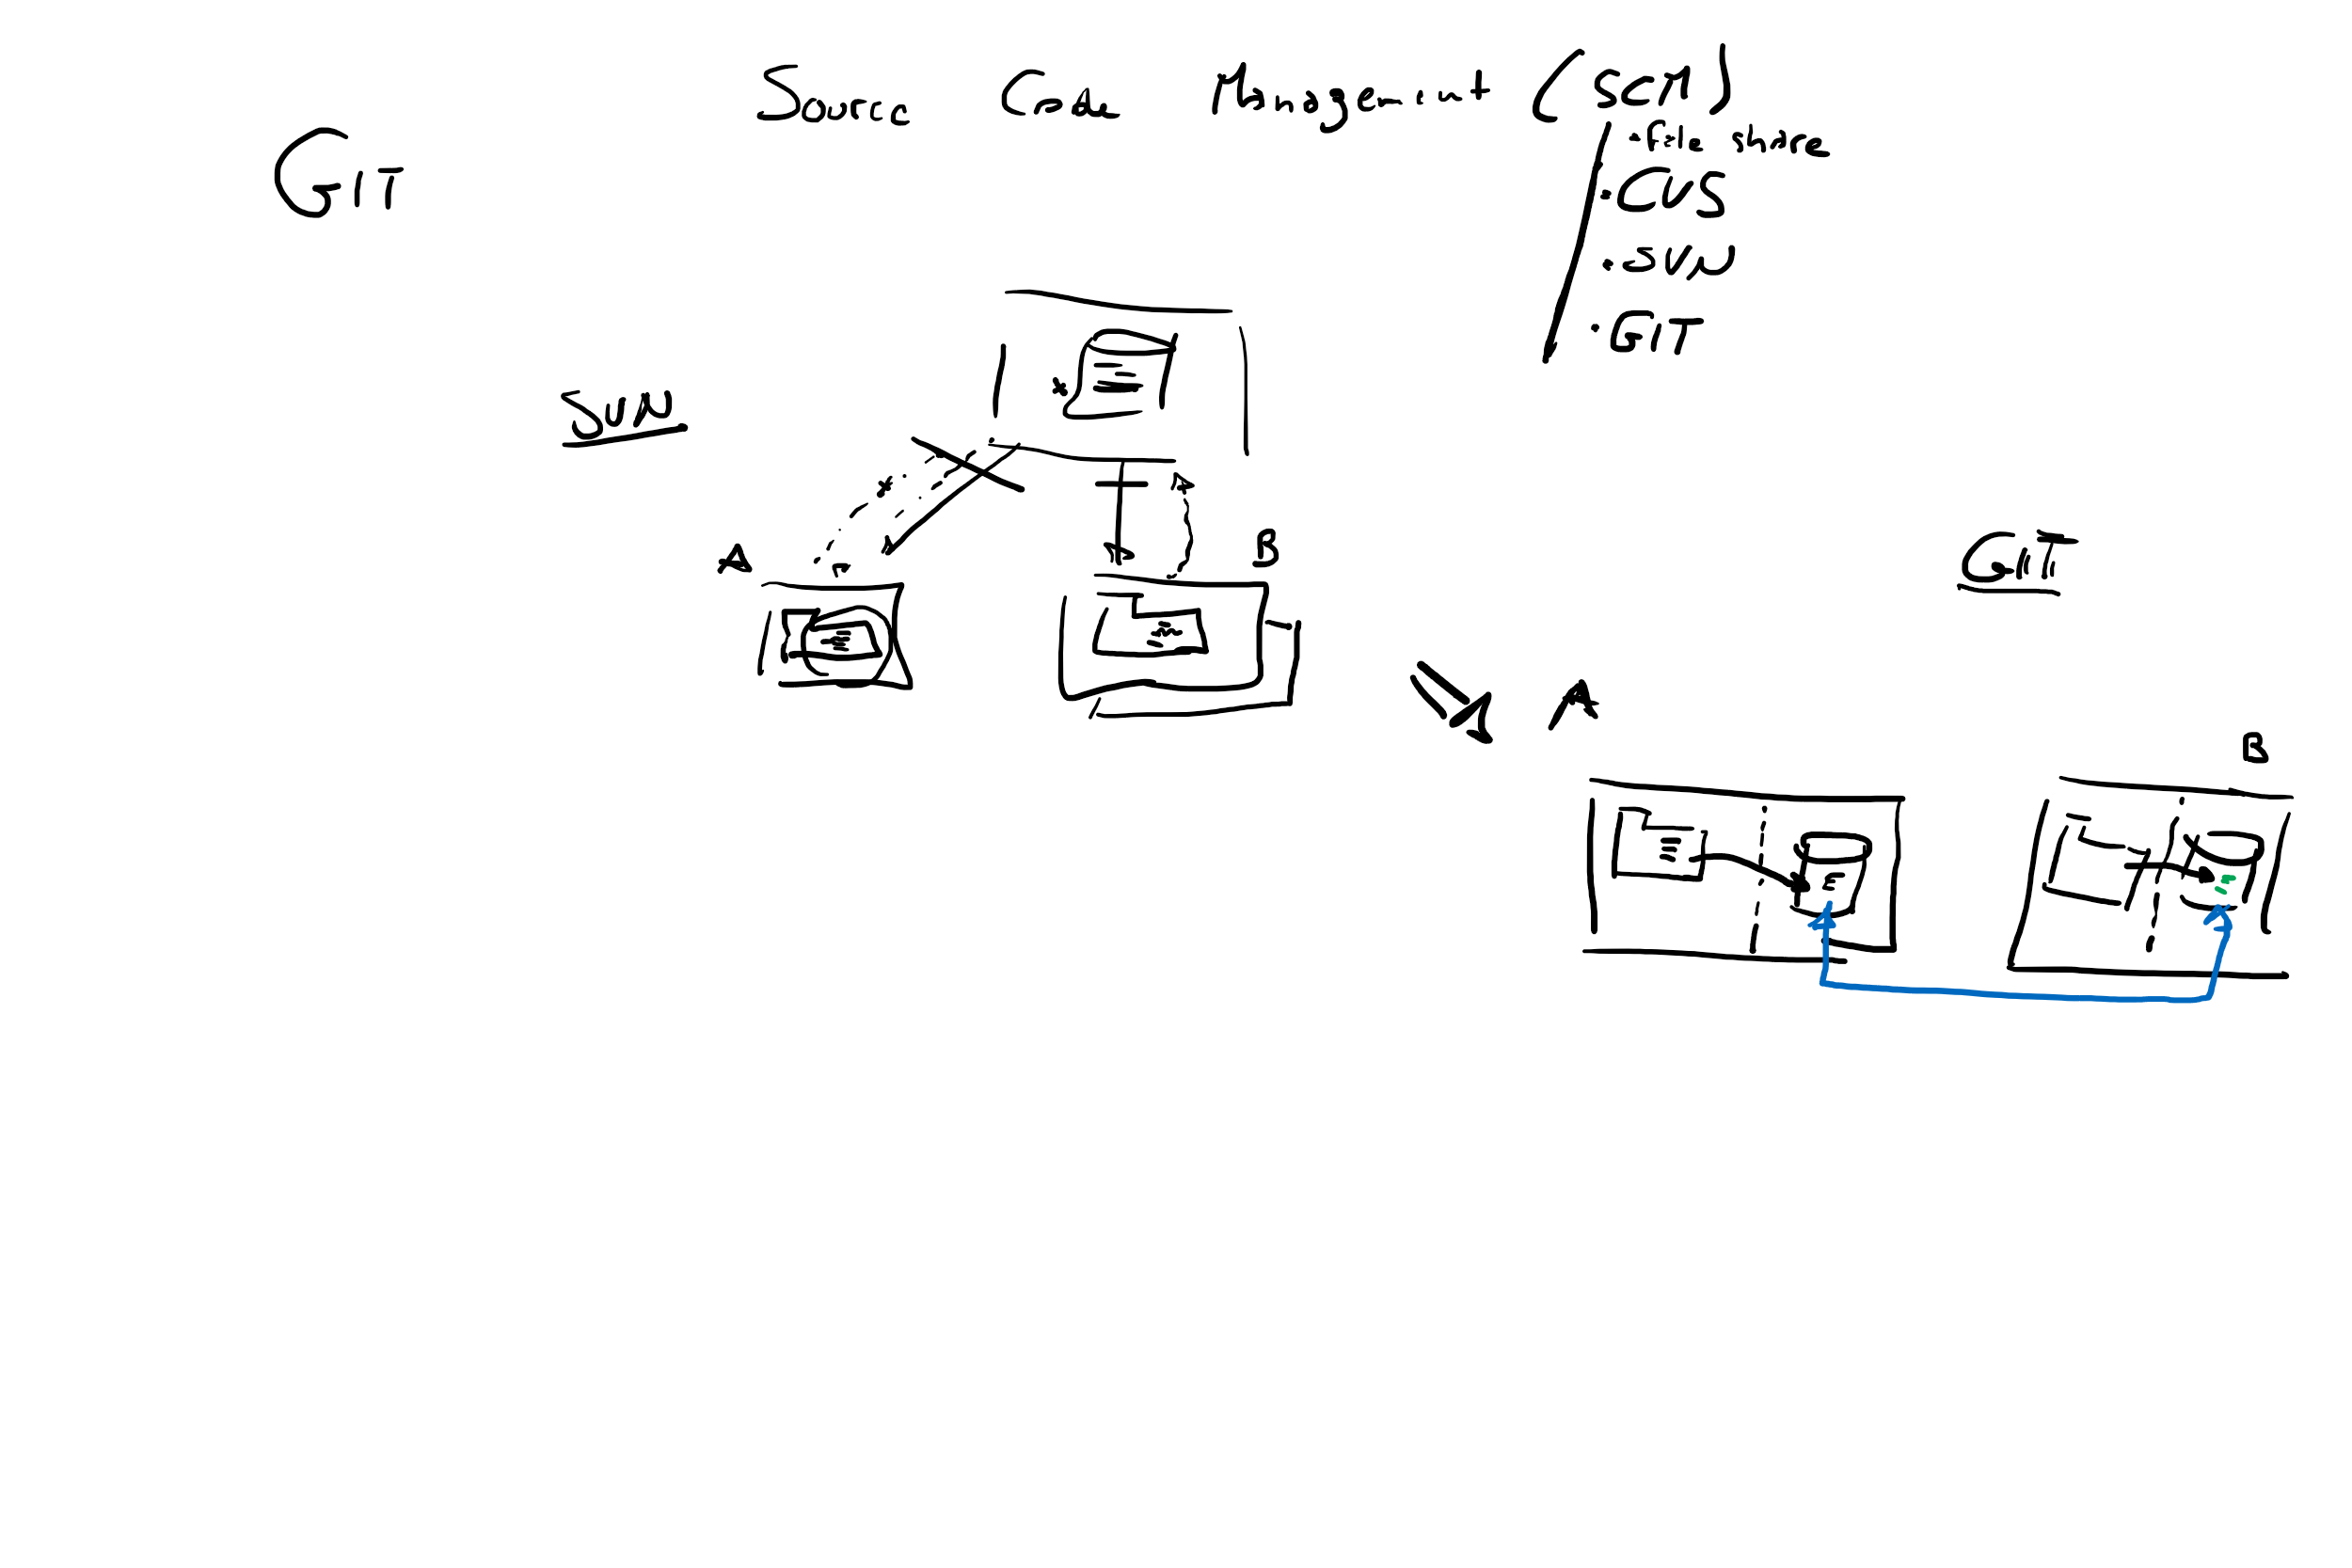 Source Code Management (SCM)
GIT
• file share
• CVS
• SVN
• GIT
SVN
A
B
GIT
A
B